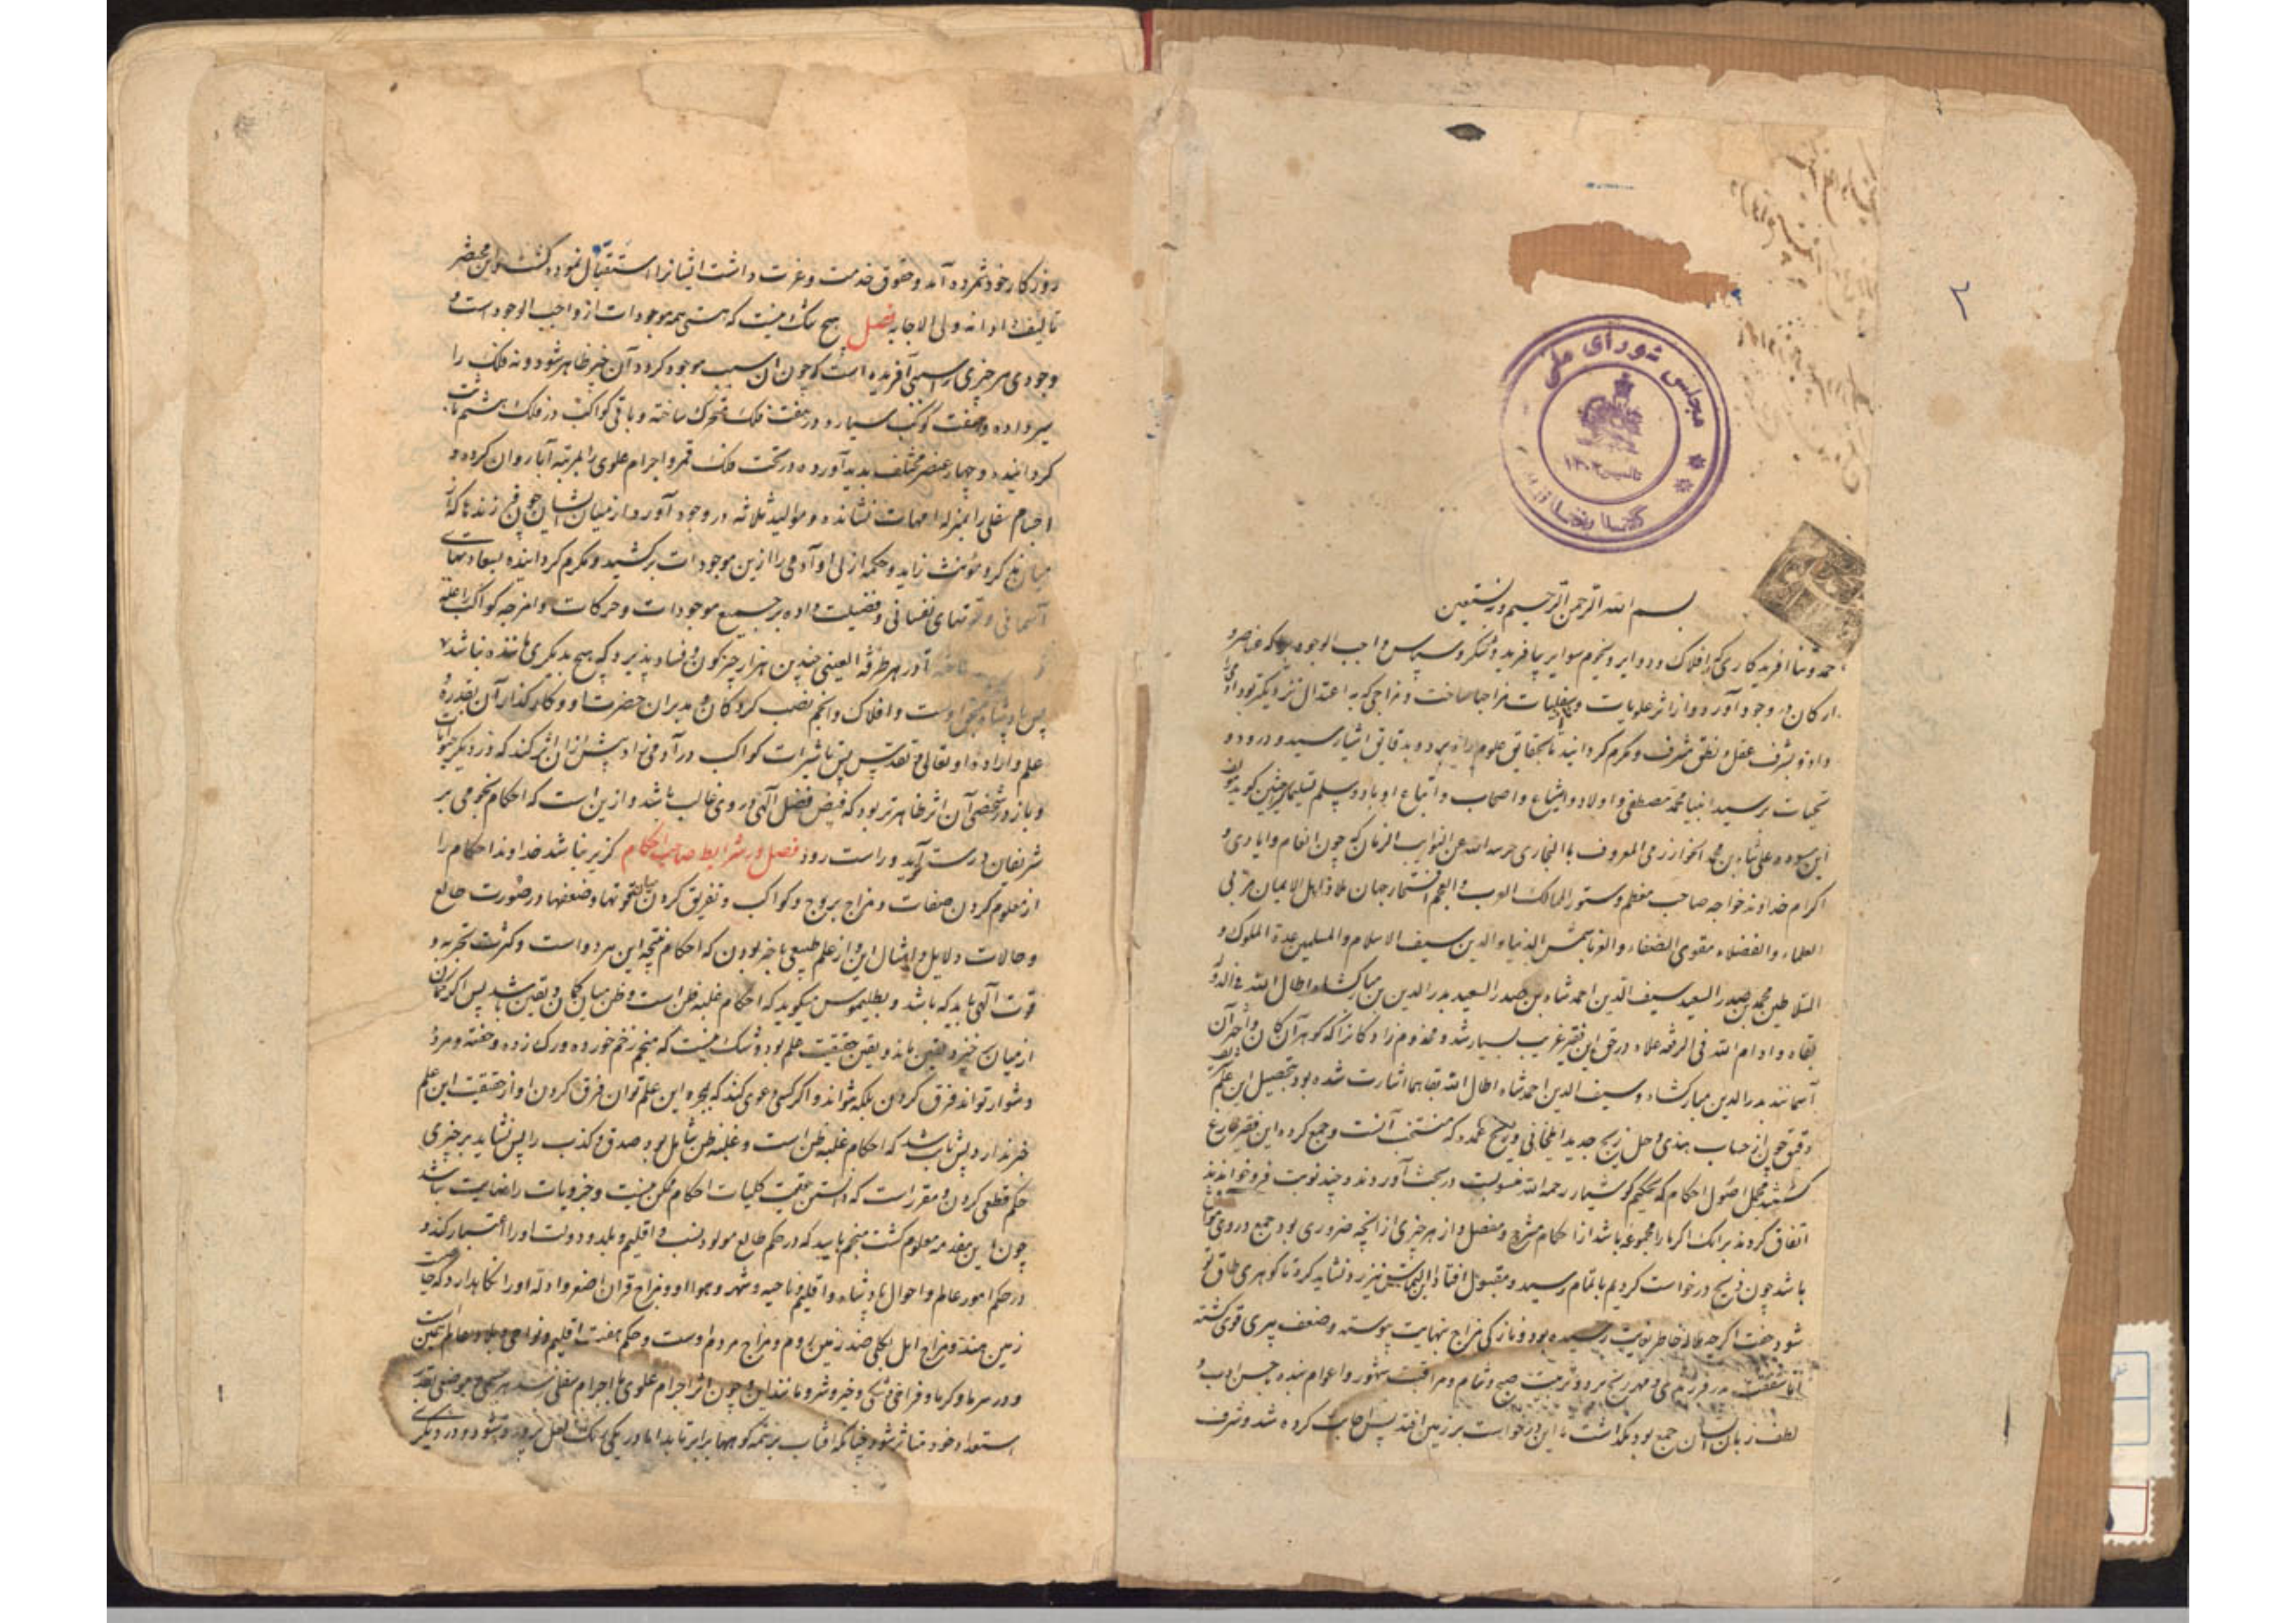 ۲
مجلس شورای ملی
کتابخانه
بسم الله الرحمن الرحیم وبه نستعین
حمد و ثنا آفریدکاری که افلاک و دوایر و نجوم سوایر بیافرید و شکر و سپاس واجب الوجودی که عناصر و
ارکان در وجود آورد و از اثر علویات و سفلیات مزاجها ساخت و مزاجی که به اعتدال نزدیکتر بود آدمی را
داد و بشرف عقل و نطق مشرف و مکرم کردانید تا بحقایق علوم راه برد و بدقایق اشیا رسید و درود و
تحیات بر سید انبیا محمد مصطفی و اولاد و اشیاع و اصحاب و اتباع او باد و سلم تسلیما چنین کوید
این علی شاه بن محمد الخوارزمی المعروف بالبخاری حرسه الله عن النوایب الزمان که چون انعام و ایادی و
اکرام خداوند خواجه صاحب معظم دستور الممالک العرب و العجم افتخار جهان ملاذ اهل الایمان مربی
العلماء و الفضلاء مقوی الضعفاء شمس الدنیا و الدین سیف الاسلام و المسلمین عمدة الملوک و
السلاطین محمد بن صدر السعید سیف الدین احمد شاه بن صدر السعید بدر الدین بن مبارکشاه اطال الله
بقاه و ادام الله فی الرفعه علاه در حق این فقیر غریب بسیار شد و مخدوم زادکانرا که کوهر آن کان و اختر آن
آسمانند بدر الدین مبارکشاه و سیف الدین احمد شاه اطال الله بقاهما اشارت شده بود بتحصیل این علم
دقیق چون از حساب هندی و حل زیج جدید ایلخانی و زیج عمده که منتخب آنست و جمع کرده این فقیر فارغ
کشتند مجمل اصول احکام که بحکیم کوشیار رحمه الله منسوبست در بحث آوردند و چند نوبت فرو خواندند
اتفاق کردند برانک اکر ما را مجموعه باشد از احکام مشرح و مفصل و از هر چیزی از آنچه ضروری بود جمع در وی
باشد چون زیج درخواست کردیم باتمام رسید و مقبول افتاد این التماس نیز رد نشاید کرد تا کوهری طاق تو
شود جفت اکرچه خاطر بغایت رسیده بود و نازکی مزاج بنهایت پیوسته و ضعف پیری قوی کشته
اما شفقت و تربیت صبح و شام و مراقبت شهور و اعوام بنده حسن ادب و
لطف زبان ایشان جمع بود نکذاشت که این درخواست بر زمین افتد پس اجابت کرده شد و شرف
روزکار خود شمرده آمد و حقوق خدمت و عزت داشت ایشانرا استقبال نموده کشت و این مختصر
تالیف افتاد انه ولی الاجابه فصل هیچ شک نیست که هستی همه موجودات از واجب الوجود است و
وجودی هر چیزی را سببی آفریده است که چون آن سبب موجود کردد آن چیز ظاهر شود و نه فلک را
سیر داده و هفت کوکب سیاره در هفت فلک متحرک ساخته و باقی کواکب در فلک هشتم ثابت
کردانیده و چهار عنصر مختلف بدید آورده در تحت فلک قمر و اجرام علوی را بمرتبه آبا روان کرده و
اجسام سفلی را بمنزله امهات نشانده و موالید ثلاثه در وجود آورد از میان ایشان چون فرزندها که از
میان مذکر و مؤنث زاید و حکمه ازلی او آدمی را ازین موجودات برکشید و مکرم کردانیده بسعادتهای
آسمانی و قوتهای نفسانی و فضیلت داده بر جمیع موجودات و حرکات و امزجه کواکب را
تا در هر طرفة العینی چندین هزار چیز کون و فساد پذیرد که هیچ بدیکری ماننده نباشد
پس پادشاه اوست و افلاک و انجم نصب کردکان و مدبران حضرت او و کارکذاران بقدر
علم و اراده او تعالی و تقدس پس تاثیرات کواکب در آدمی زاد بیش از آن اثر کند که در دیکر حیوانات
و باز در شخصی آن اثر ظاهرتر بود که فیض فضل الهی در وی غالب باشد و ازین است که احکام نجومی بر
شریفان درست آید و راست رود فصل در شرایط صاحب احکام کزیر نباشد خداوند احکام را
از معلوم کردن صفات و مزاج بروج و کواکب و تفریق کردن میان قوتها و ضعفها در صورت طالع
و حالات دلایل و امثال این و از علم طبیعی باخبر بودن که احکام نتیجه این هر دو است و کثرت تجربه و
قوت الهی باید که باشد و بطلیموس میکوید که احکام غلبه ظن است و ظن میان کمان و یقین باشد پس اکر
از میان برخیزد یقین ماند و یقین حقیقت علم بود و شک نیست که منجم زخم خورده و رک زده و خفته و مرده
دشوار تواند فرق کردن بلکه نتواند و اکر کسی دعوی کند که بمجرد این علم توان فرق کردن او از حقیقت این علم
خبر ندارد پس ثابت شد که احکام غلبه ظن است و غلبه ظن شامل بود صدق و کذب را پس نشاید بر چیزی
حکم قطعی کردن و مقرر است که دانستن حقیقت کلیات احکام ممکن نیست و جزویات را نهایت نباشد
چون این مقدمه معلوم کشت منجم باید که در حکم طالع مولود نسب و اقلیم و بلد و دولت او را اعتبار کند و
در حکم امور عالم و احوال پادشاه و اقلیم و ناحیه و شهر و هوا او و مزاج قران اصغر و ادله او را نکاه دارد که
زمین هند و مزاج اهل بکلی ضد زمین روم و مزاج مردم اوست و حکم هفت اقلیم و نواحی و بلاد عالم همین است
و در سرما و کرما و فراخی و تنکی و خیر و شر و مانند این و چون اثر اجرام علوی باجرام سفلی رسد هر جسمی و موضعی بقدر
استعداد خود متاثر شود چنانکه آفتاب بر همه کوهها برابر تابد اما در یکی لعل پرورده شود و در دیکری